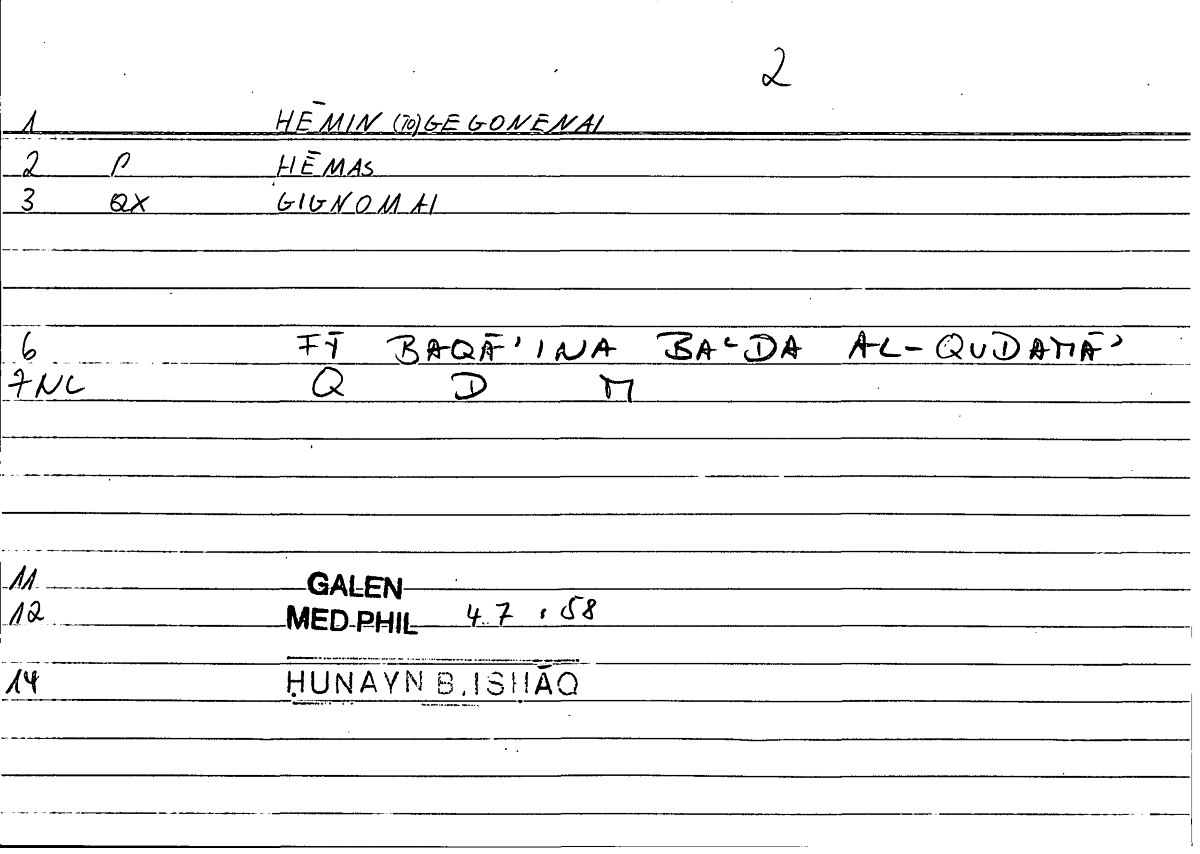 2
1 HĒMIN (TO) GEGONENAI
2 P HĒMAS
3 QX GIGNOMAI
6 FĪ BAQĀʾINA BAʿDA AL-QUDAMĀʾ
7NL Q D M
11 GALEN
12 MED.PHIL 4.7 , 58
14 ḤUNAYN B. ISḤĀQ